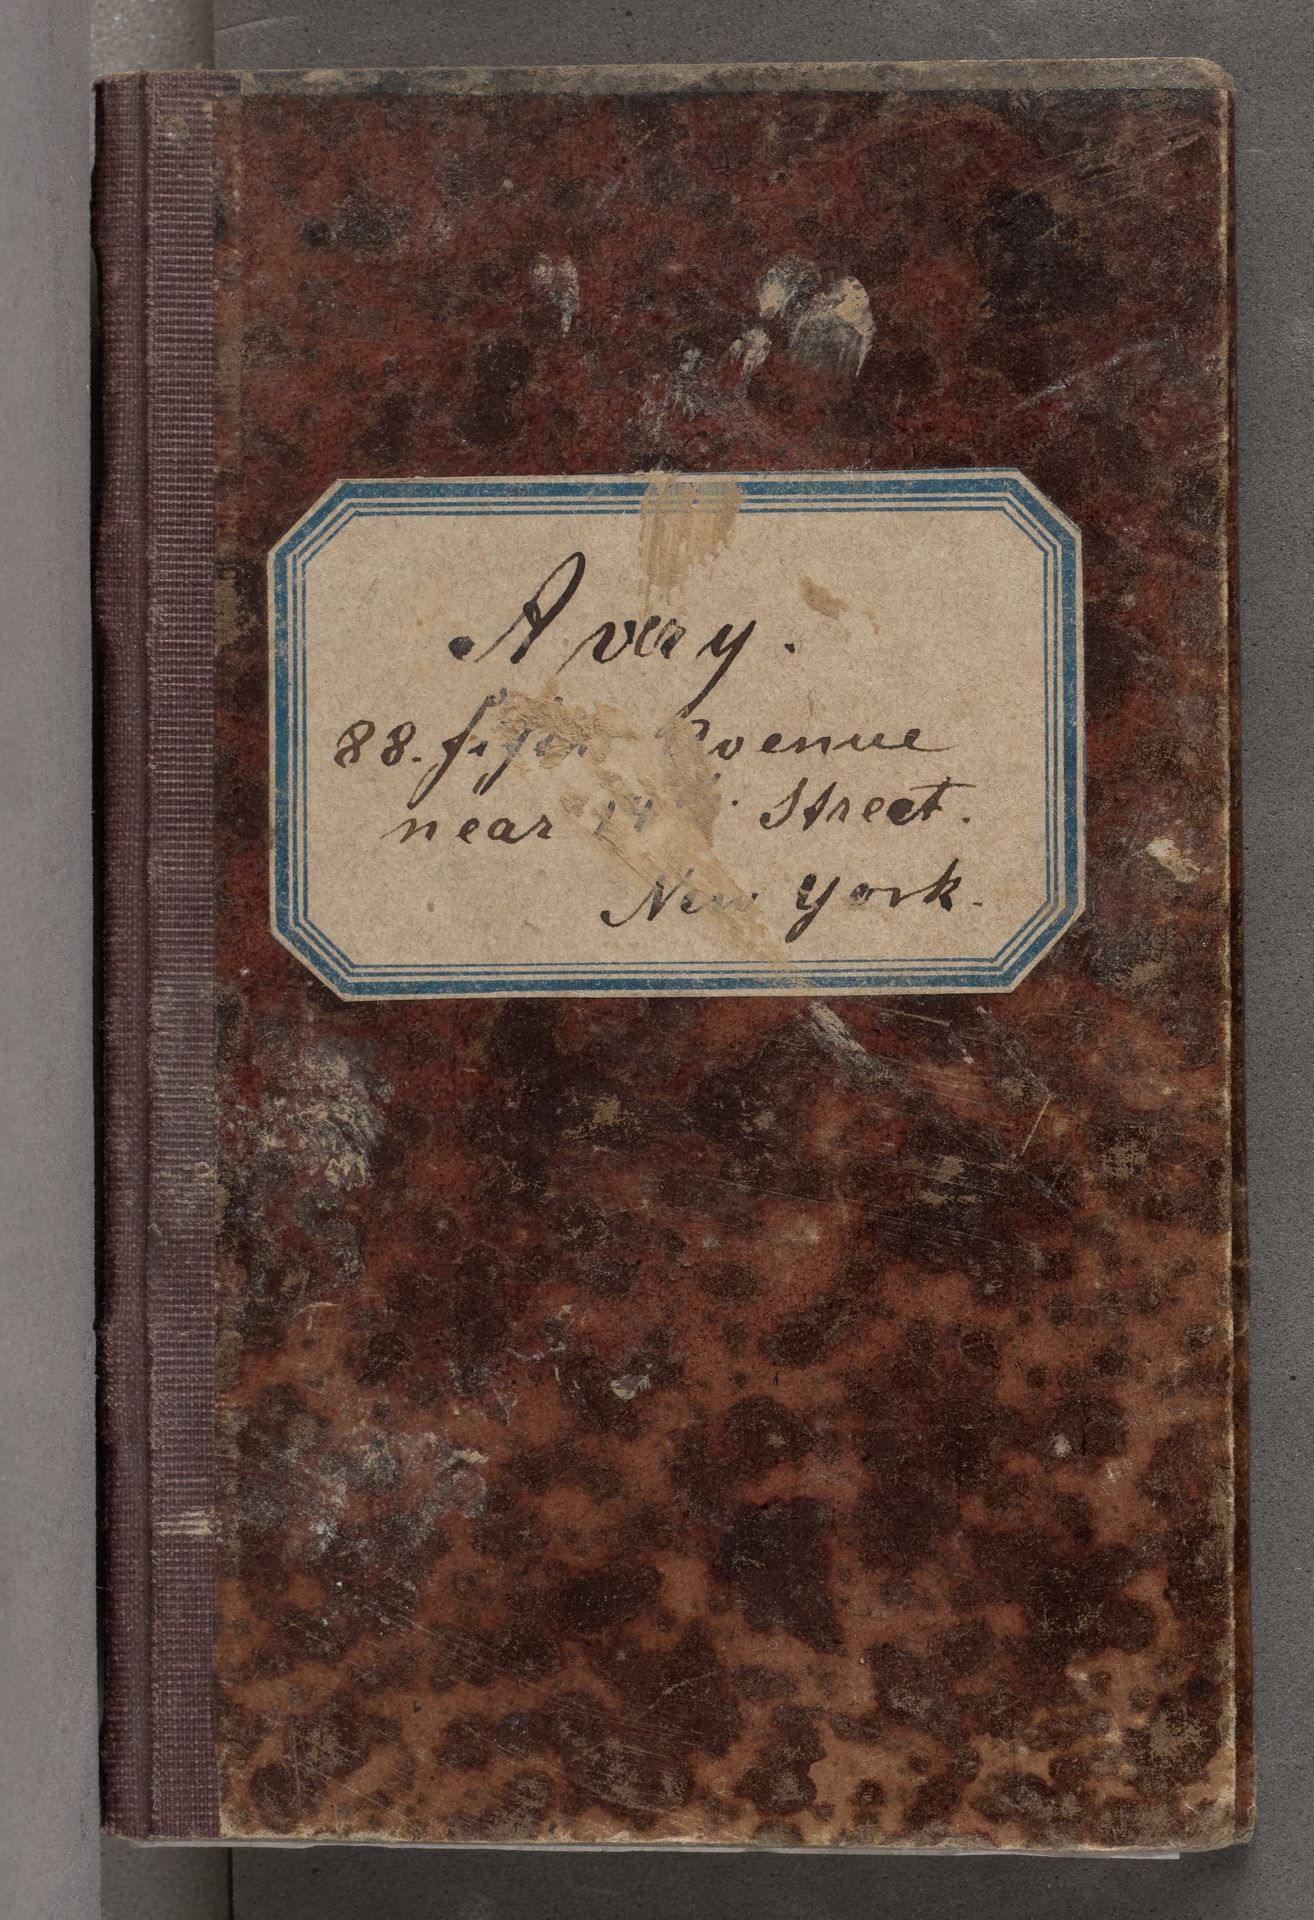 Avery.
88. fifth Avenue
near 14th. Street.
New York.